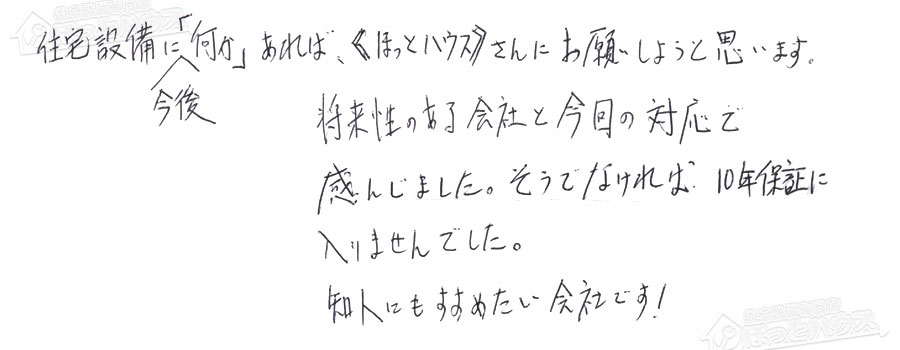 住宅設備に「何か」あれば、《ほっとハウス》さんにお願いしようと思います。
今後
将来性のある会社と今回の対応で
感んじました。そうでなければ 10年保証に
入りませんでした。
知人にもすすめたい会社です!
ほっとハウス